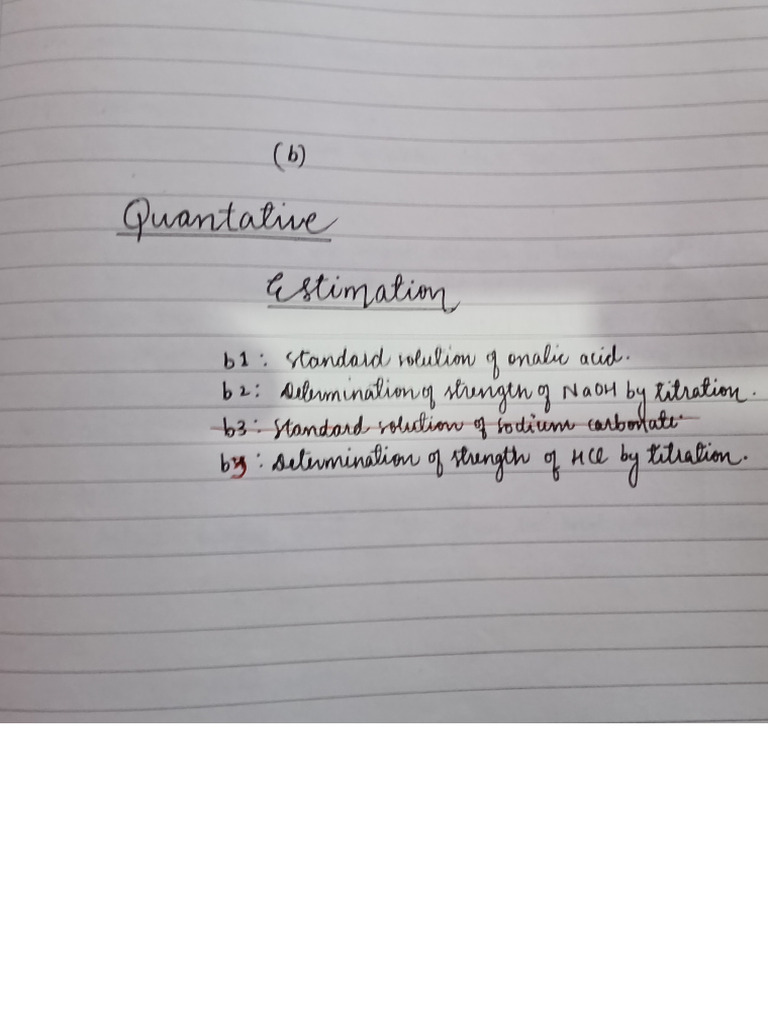 (b)
Quantative
Estimation
b1: Standard solution of onalic acid.
b2: Determination of strength of NaOH by titration.
b3: Standard solution of sodium carbonate.
b3: Determination of strength of HCl by titration.